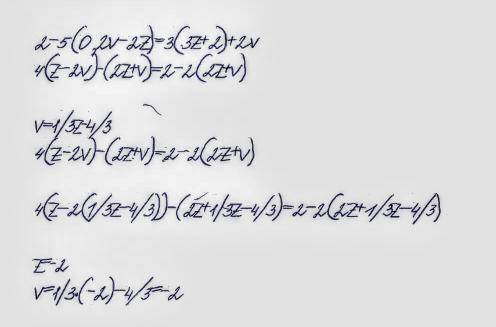 2-5(0,2v-2z)=3(3z+2)+2v
4(z-2v)-(2z+v)=2-2(2z+v)
v=1/3z-4/3
4(z-2v)-(2z+v)=2-2(2z+v)
4(z-2(1/3z-4/3))-(2z+1/3z-4/3)=2-2(2z+1/3z-4/3)
z=-2
v=1/3•(-2)-4/3=-2